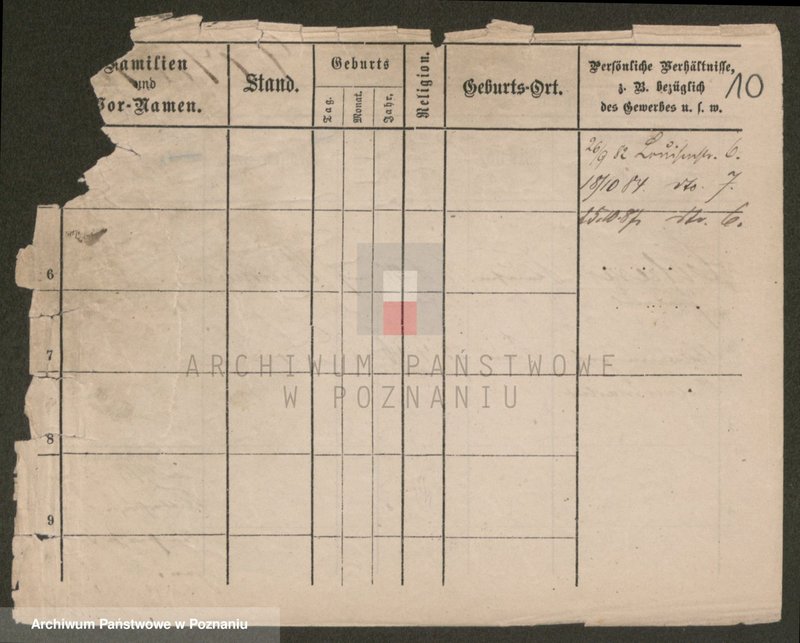 Familien
und
Vor-Namen.
Stand.
Geburts
Tag.
Monat.
Jahr.
Religion.
Geburts-Ort.
Persönliche Verhältnisse,
z. B. bezüglich
des Gewerbes u. s. w.
10
26/9 82 Louisenstr. 6.
18/10 84. dto. 7.
dto. 6.
6
7
8
9
ARCHIWUM PAŃSTWOWE
W POZNANIU
Archiwum Państwowe w Poznaniu